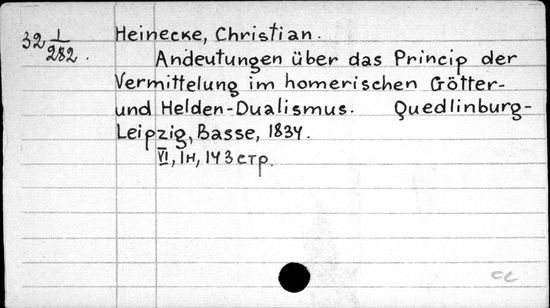 32 1/282.
Heinecke, Christian.
Andeutungen über das Princip der
Vermittelung im homerischen Götter-
und Helden-Dualismus. Quedlinburg-
Leipzig, Basse, 1834.
VI, 1н, 143 стр.